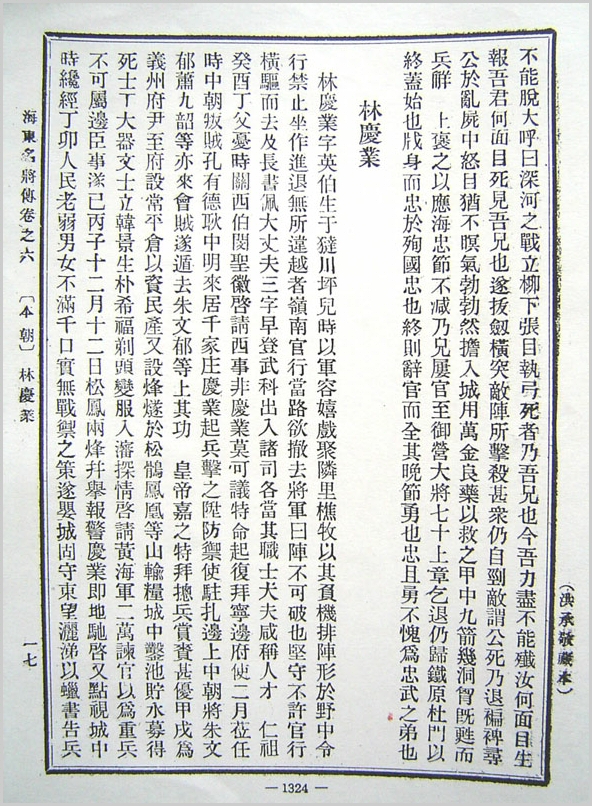 不能脫大呼曰深河之戰立柳下張目執弓死者乃吾兄也今吾力盡不能殲汝何面目生
報吾君何面目死見吾兄也遂拔劒橫突敵陣所擊殺甚衆仍自剄敵謂公死乃退褊裨尋
公於亂屍中怒目猶不暝氣勃勃然擔入城用萬金良藥以救之甲中九箭幾洞胷旣甦而
兵觧　上褒之以應海忠節不减乃兄屢官至御營大將七十上章乞退仍歸鐵原杜門以
終蓋始也戕身而忠於殉國忠也終則辭官而全其晩節勇也忠且勇不愧爲忠武之弟也
林慶業
林慶業字英伯生于㺚川坪兒時以軍容嬉戲聚隣里樵牧以其負機排陣形於野中令
行禁止坐作進退無所違越者嶺南官行當路欲撤去將軍曰陣不可破也堅守不許官行
橫驅而去及長書佩大丈夫三字早登武科出入諸司各當其職士大夫咸稱人才　仁祖
癸酉丁父憂時關西伯閔聖徽啓請西事非慶業莫可議特命起復拜寧邊府使二月莅任
時中朝叛賊孔有德耿中明來居千家庄慶業起兵擊之陞防禦使駐扎邊上中朝將朱文
郁蕭九韶等亦來會賊遂遁去朱文郁等上其功　皇帝嘉之特拜摠兵賞賚甚優甲戌爲
義州府尹至府設常平倉以資民產又設烽燧於松鶻鳳凰等山輸糧城中鑿池貯水募得
死士丁大器文士立韓景生朴希福剃頭變服入瀋探情啓請黃海軍二萬諫官以爲重兵
不可屬邊臣事遂已丙子十二月十二日松鳳兩烽幷舉報警慶業卽地馳啓又點視城中
時纔經丁卯人民老弱男女不滿千口實無戰禦之策遂嬰城固守東望灑涕以蠟書告兵
海東名將傳卷之六　〔本朝〕　林慶業
一七
（洪承敬藏本）
— 1324 —